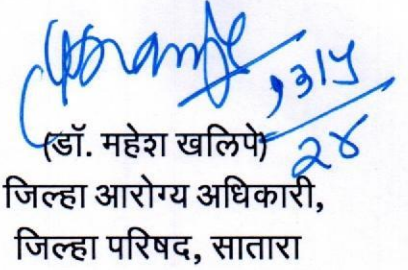 (डॉ. महेश खलिपे)
जिल्हा आरोग्य अधिकारी,
जिल्हा परिषद, सातारा